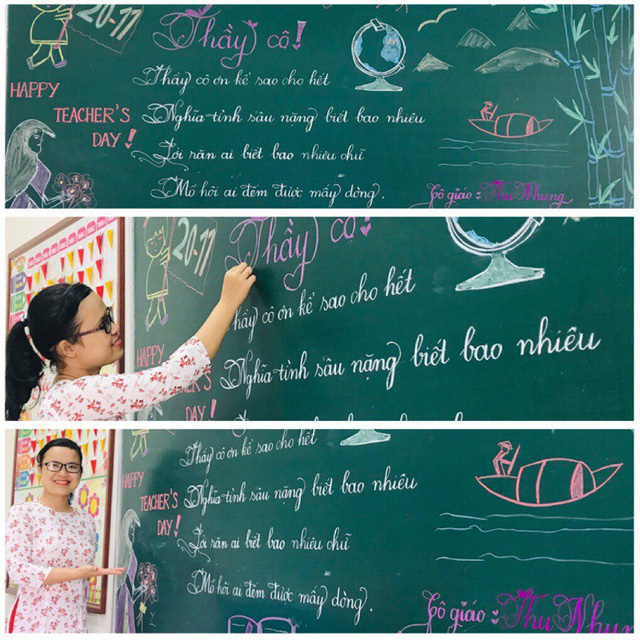 20-11
Thầy cô!
HAPPY
TEACHER'S
DAY!
Thầy cô ơn kể sao cho hết
Nghĩa tình sâu nặng biết bao nhiêu
Lời răn ai biết bao nhiêu chữ
Mồ hôi ai đếm được mấy dòng.
Cô giáo: Thu Nhung
20-11
Thầy cô!
Thầy cô ơn kể sao cho hết
HAPPY
Nghĩa tình sâu nặng biết bao nhiêu
DAY!
Thầy cô ơn kể sao cho hết
HAPPY
TEACHER'S
DAY!
Nghĩa tình sâu nặng biết bao nhiêu
Lời răn ai biết bao nhiêu chữ
Mồ hôi ai đếm được mấy dòng.
Cô giáo: Thu Nhun